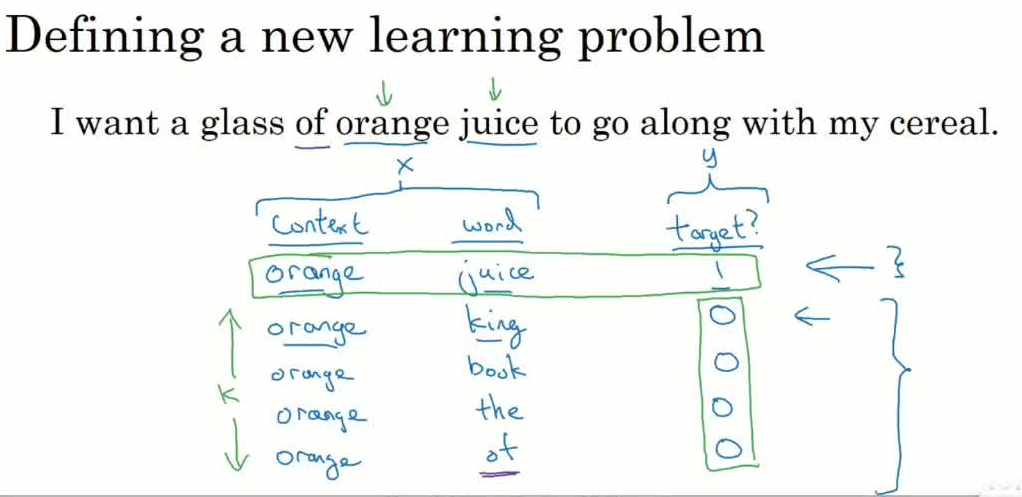 Defining a new learning problem
I want a glass of orange juice to go along with my cereal.
x y
context word target?
orange juice 1
orange king 0
orange book 0
k orange the 0
orange of 0